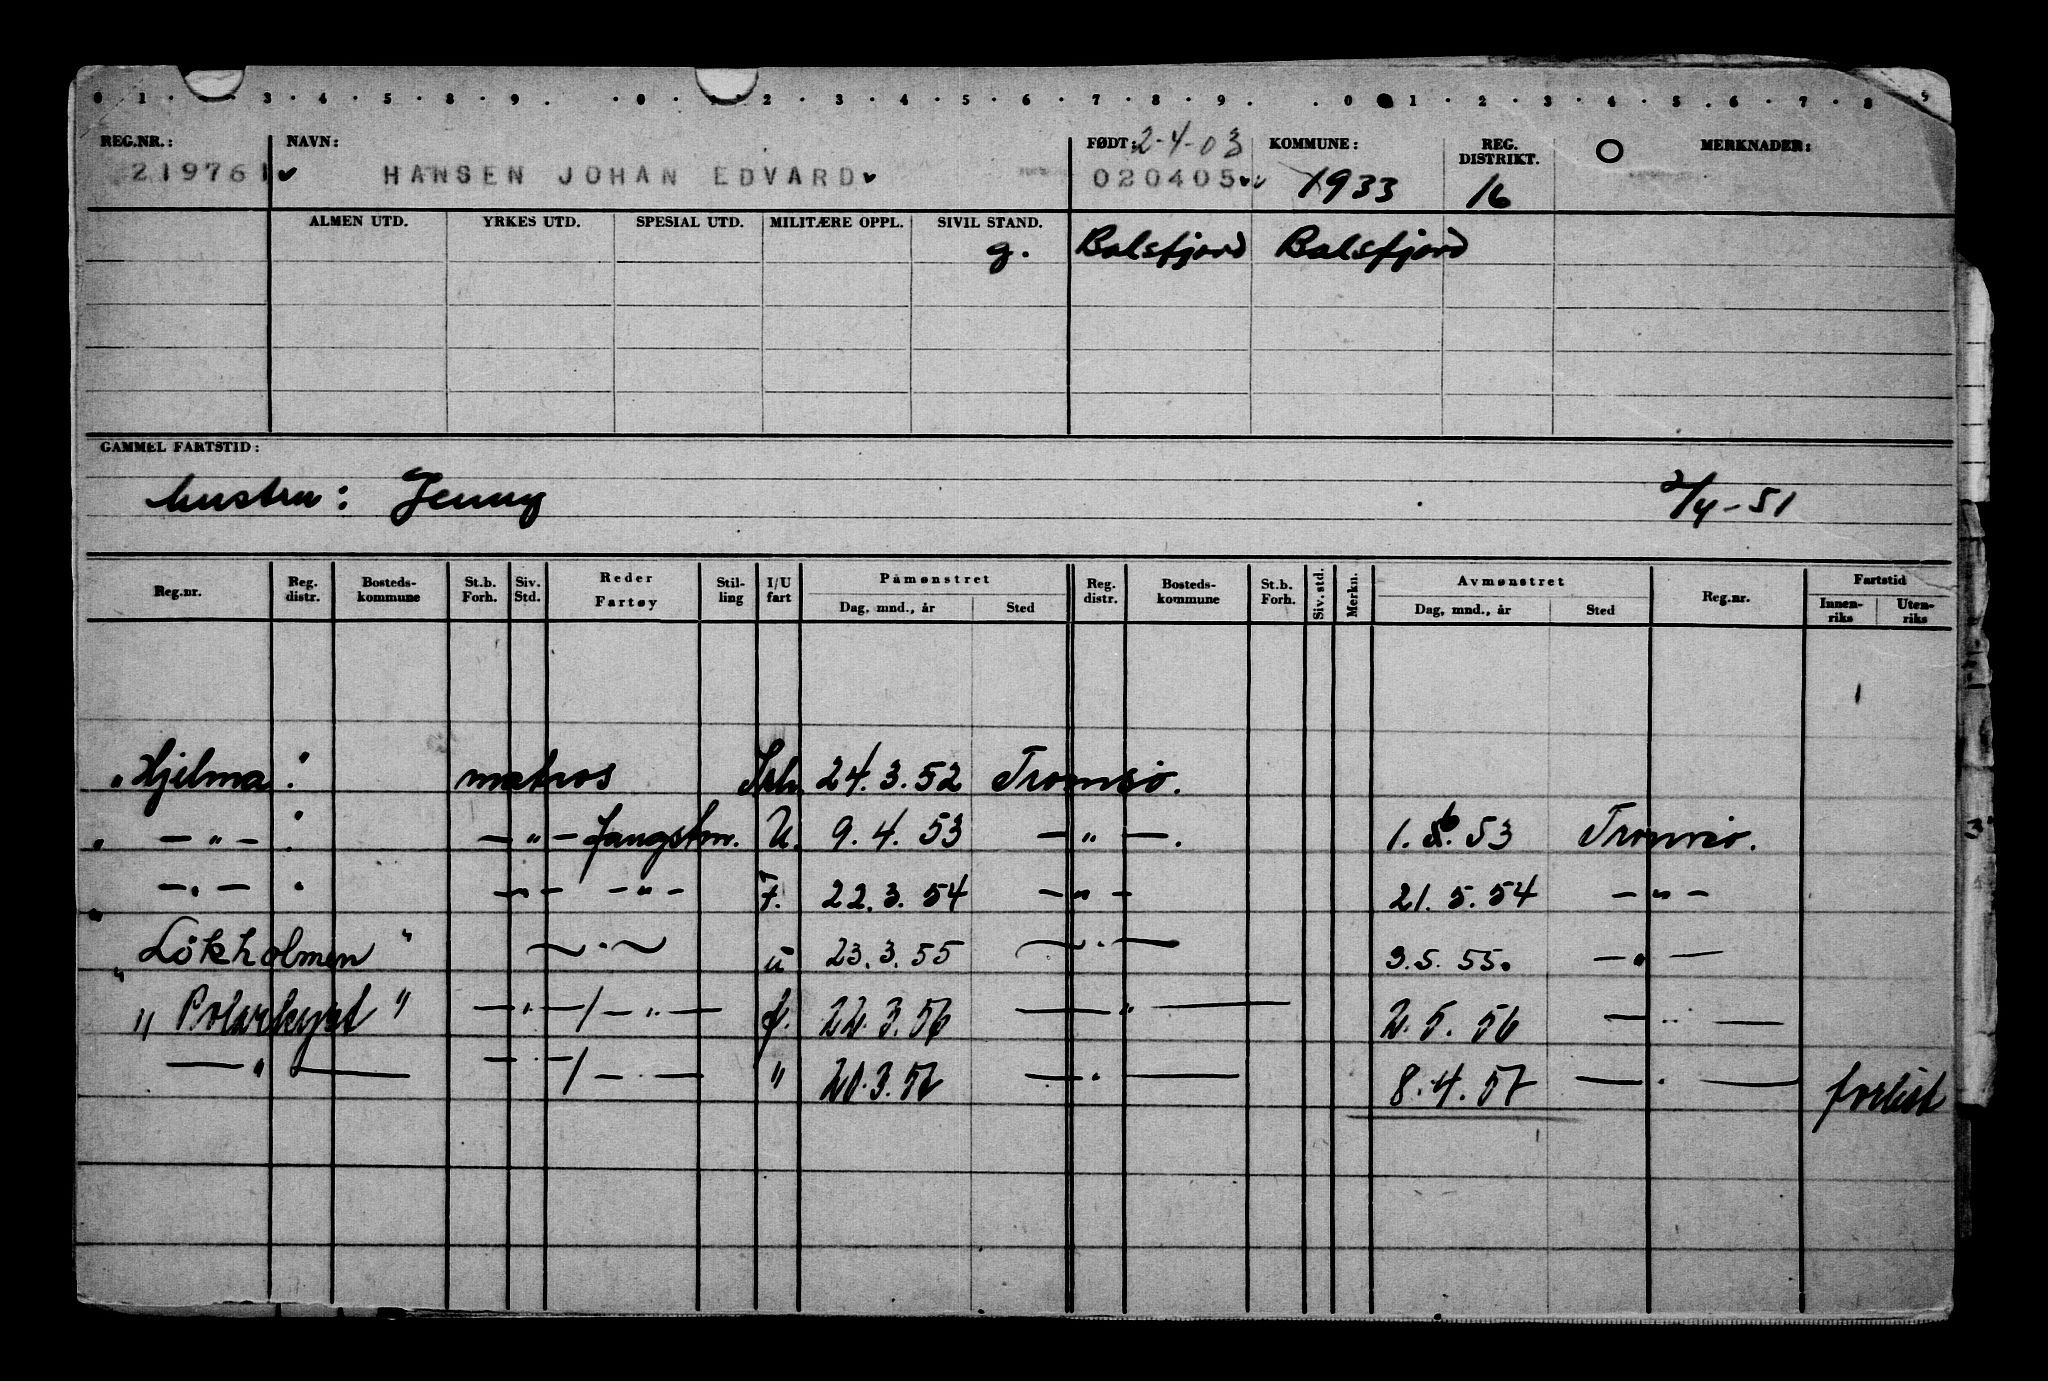 0 1 · · 3 · 4 · 5 · 8 · 9 . · 0 · 1 2 · 3 · 4 · 5 · 6 · 7 · 8 · 9 . . 0 1 · 2 · 3 · 4 · 5 · 6 · 7 · 8 9
REG.NR.: NAVN: FØDT: 2-4-03 KOMMUNE: REG. DISTRIKT. O MERKNADER:
219761 HANSEN JOHAN EDVARD 020405 1933 16
ALMEN UTD. YRKES UTD. SPESIAL UTD. MILITÆRE OPPL. SIVIL STAND.
g. Balsfjord Balsfjord
GAMMEL FARTSTID:
hustru: Jenny 2/4-51
Reg.nr. Reg. distr. Bosteds- kommune St.b. Forh. Siv. Std. Reder Fartøy Stil- ling I/U fart Påmønstret Dag, mnd., år Sted Reg. distr. Bosteds- kommune St.b. Forh. Siv. std. Merkn. Avmønstret Dag, mnd., år Sted Reg.nr. Fartstid Innen- riks Uten- riks
"Hjelma" matros 24.3.52 Tromsø.
" — " — " — " — fangstm. U. 9.4.53 — " —. 1.6.53 Tromsø.
— " — " — " — — " — F. 22.3.54 — " — 21.5.54 — " —
"Lökholmen" — " — u 23.3.55 — " — 3.5.55. — " —
"Polarkyst" — " — / — " — f. 22.3.56 — " — 2.5.56 — " —
— " — — " — / — " — " — " — 8.4.57 — " — forlist